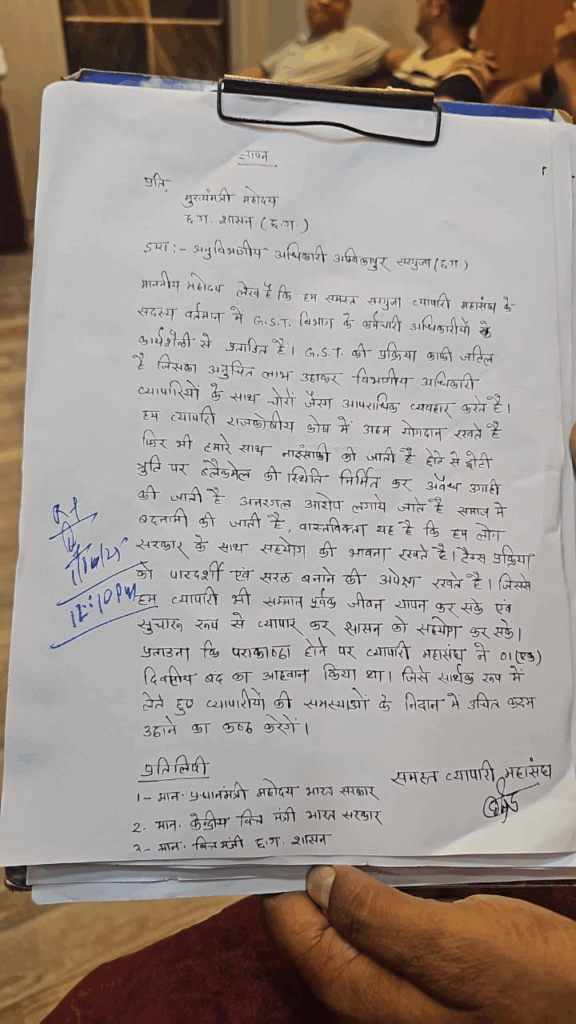 ज्ञापन
प्रति,
मुख्यमंत्री महोदय
छ.ग. शासन (छ.ग.)
द्वारा :- अनुविभागीय अधिकारी अम्बिकापुर सरगुजा (छ.ग.)
माननीय महोदय लेख है कि हम समस्त सरगुजा व्यापारी महासंघ के
सदस्य वर्तमान में G.S.T. विभाग के कर्मचारी अधिकारीयों के
कार्यशैली से प्रताड़ित है। G.S.T. की प्रक्रिया काफी जटिल
है जिसका अनुचित लाभ उठाकर विभागीय अधिकारी
व्यापारियों के साथ चोरों जैसा आपराधिक व्यवहार करते है।
हम व्यापारी राजकोषीय कोष में अहम योगदान रखते है
फिर भी हमारे साथ नाइंसाफी की जाती है छोटे से छोटी
त्रुटि पर ब्लैकमेल की स्थिति निर्मित कर अवैध उगाही
की जाती है अनरगल आरोप लगाये जाते है समाज में
बदनामी की जाती है, वास्तविकता यह है कि हम लोग
सरकार के साथ सहयोग की भावना रखते है। टैक्स प्रक्रिया
को पारदर्शी एवं सरल बनाने की अपेक्षा रखते है। जिससे
हम व्यापारी भी सम्मान पूर्वक जीवन यापन कर सके एवं
सुचारू रूप से व्यापार कर शासन को सहयोग कर सके।
प्रताडना कि पराकाष्ठा होने पर व्यापारी महासंघ ने 01(एक)
दिवसीय बंद का आहवान किया था। जिसे सार्थक रूप में
लेते हुए व्यापारीयों की समस्याओं के निदान में उचित कदम
उठाने का कष्ट करेगें।
12:10 PM
प्रतिलिपी
समस्त व्यापारी महासंघ
1- मान. प्रधानमंत्री महोदय भारत सरकार
2- मान. केन्द्रीय वित्त मंत्री भारत सरकार
3- मान. वित्तमंत्री छ.ग. शासन